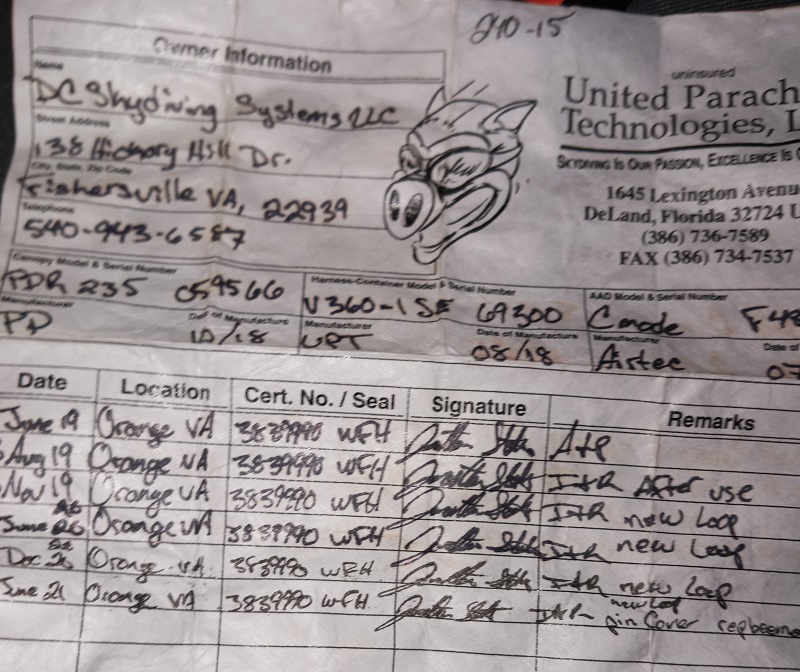 240-15
Owner Information
Name
DC Skydiving Systems LLC
Street Address
138 Hickory Hill Dr.
City, State, Zip Code
Fishersville VA, 22939
Telephone
540-943-6587
uninsured
United Parach
Technologies, L
SKYDIVING IS OUR PASSION, EXCELLENCE IS
1645 Lexington Avenu
DeLand, Florida 32724 U
(386) 736-7589
FAX (386) 734-7537
Canopy Model & Serial Number
PDR 235 059566
Manufacturer
PD
Date of Manufacture
10/18
Harness-Container Model & Serial Number
V360-1 SE 69300
Manufacturer
UPT
Date of Manufacture
08/18
AAD Model & Serial Number
Cmode F48
Manufacturer
Airtec
Date of
07
Date Location Cert. No. / Seal Signature Remarks
June 19 Orange VA 3839990 WFH A+P
Aug 19 Orange VA 3839990 WFH I+R After use
Nov 19 Orange VA 3839990 WFH I+R new Loop
June 20 Orange VA 3839990 WFH I+R new Loop
Dec 20 Orange VA 3839990 WFH I+R new Loop
June 21 Orange VA 3839990 WFH I+R new Loop
pin Cover